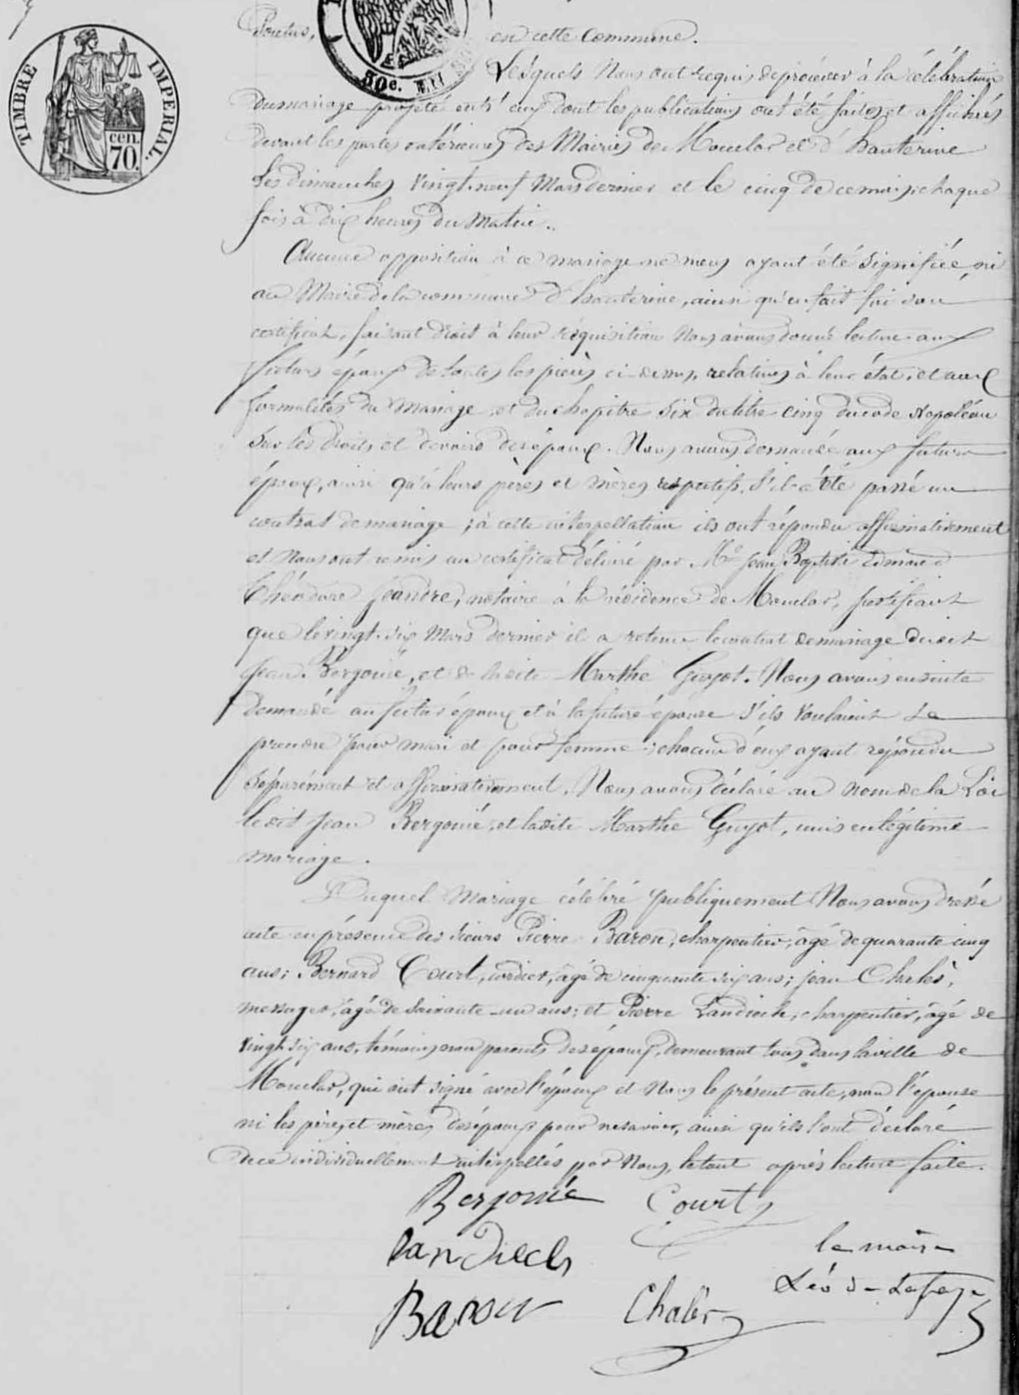 TIMBRE IMPERIAL.
cen.
70.
50c.
en cette Commune.
Lesquels Nous ont requis de procéder à la célébration
du mariage projeté entr'eux dont les publications ont été faites et affichés
devant les portes extérieures des Mairies de Monclar et d'hauterive
Les dimanches Vingt-neuf Mars dernier et le cinq de ce mois, chaque
fois à dix heures du Matin.
Aucune opposition à ce mariage ne nous ayant été signifiée, ni
au Maire de la commune d'hauterive, ainsi qu'en fait foi son
certificat, faisant droit à leur réquisition Nous avons donné lecture aux
futurs époux de toutes les pièces ci-dessus, relatives à leur état, et aux
formalités du Mariage et du chapitre Six du titre cinq du code Napoléon
Sur les droits et devoirs des époux. Nous avons demandé aux futurs
époux, ainsi qu'à leurs pères et mères respectifs, S'il a été passé un
contrat de mariage ; à cette interpellation ils ont répondu affirmativement
et Nous ont remis un certificat délivré par Me Jean Baptiste Edmond
Théodore notaire à la résidence de Monclar, justifiant
que le vingt-six Mars dernier il a retenu le contrat de mariage dudit
Jean Bergonié, et de ladite Marthe Guyot. Nous avons ensuite
demandé au futur époux et à la future épouse S'ils Voulaient Se
prendre pour mari et pour femme ; chacun d'eux ayant répondu
Séparément et affirmativement, Nous avons déclaré au nom de la Loi
ledit Jean Bergonié, et ladite Marthe Guyot, unis en légitime
mariage.
Duquel Mariage célébré publiquement Nous avons dressé
acte en présence des Sieurs Pierre Baron, charpentier, âgé de quarante cinq
ans ; Bernard Court, cordier, âgé de cinquante six ans ; jean
messager, âgé de Soixante-un ans ; et Pierre Landiech, charpentier, âgé de
Vingt-six ans, témoins non parents des époux, demeurant tous dans la ville de
Monclar, qui ont signé avec l'époux et Nous le présent acte, non l'épouse
ni les pères et mères des époux pour ne savoir, ainsi qu'ils l'ont déclaré
de ce individuellement interpellés par Nous, le tout après lecture faite.
Bergonié Court
Landiech
le maire
Baron